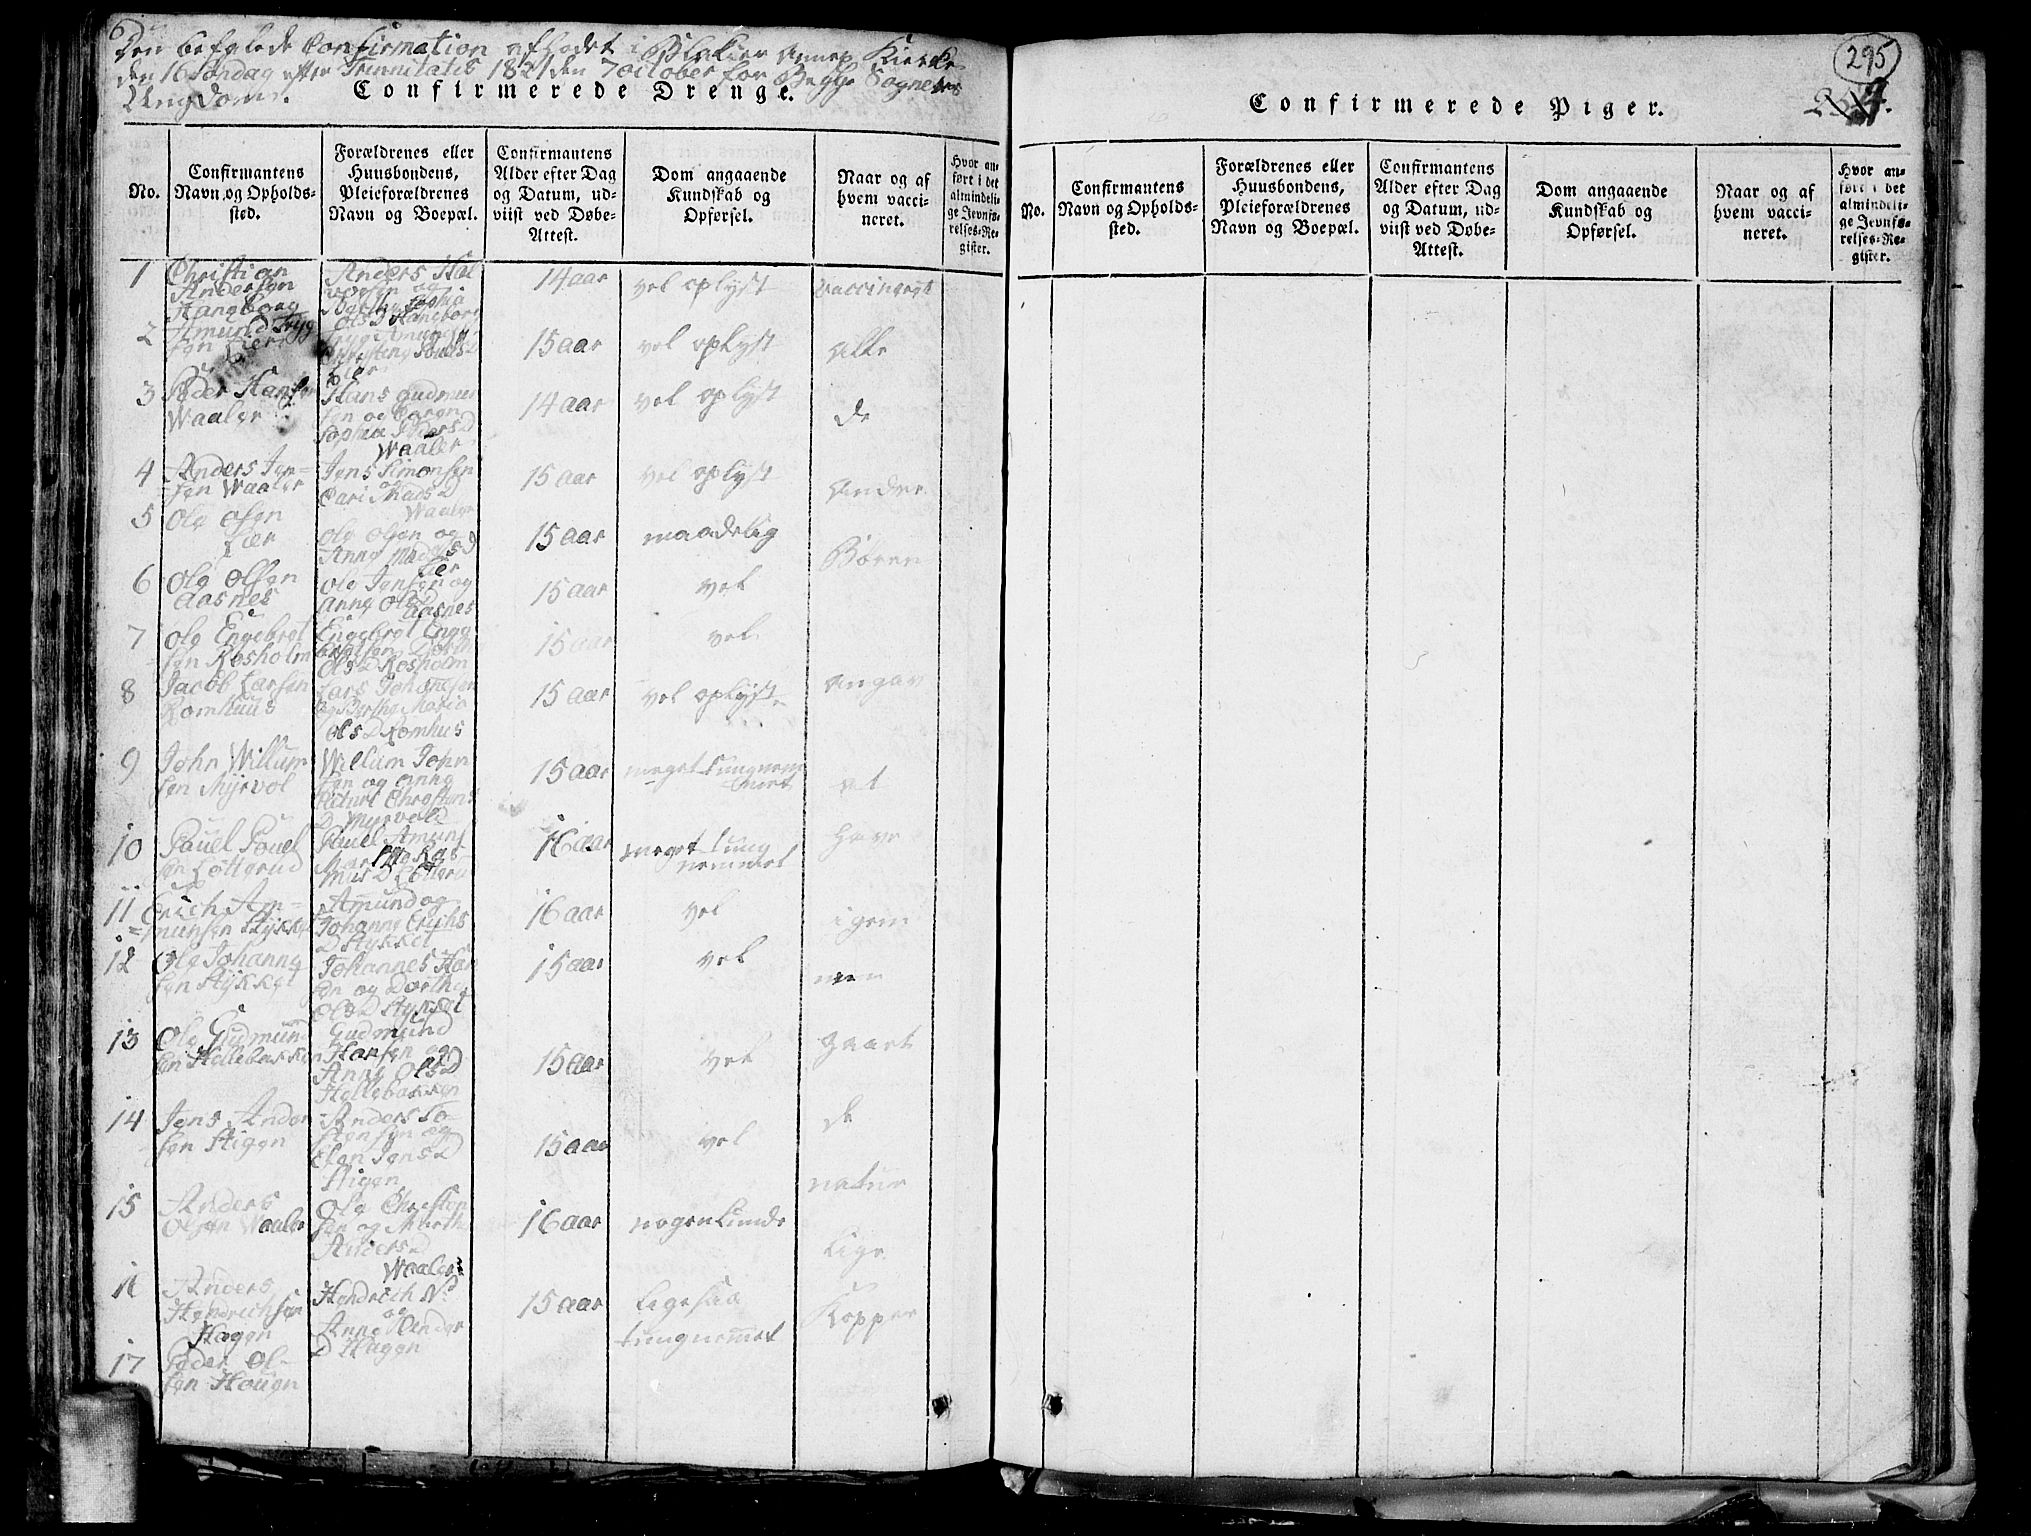 Den befalede Confirmation afholdet i Blakier Annex Kierke
den 16 Søndag efter Trinnitatis 1821 den 7 october for Begge Sognenes
Ungdom.
Confirmerede Drenge.
No.
Confirmantens
Navn og Opholds-
sted.
Forældrenes eller
Huusbondens,
Pleieforældrenes
Navn og Boepæl.
Confirmantens
Alder efter Dag
og Datum, ud-
viist ved Døbe-
Attest.
Dom angaaende
Kundskab og
Opførsel.
Naar og af
hvem vacci-
neret.
Hvor an-
ført i det
almindeli-
ge Jevnfø-
relses-Re-
gister.
1
Christian
Andersen
Hangborg
Anders Hal
vorsen og
Berthe Sophia
Ols D Hangborg
14 aar
vel oplyst
Vaccineret
2
Amund Tryg
sen Lier
Lier
15 aar
vel oplyst
Alle
3
Peder Hansen
Waaler
Hans Gudmun
sen og Caren
Sophia Peders D
Waaler
14 aar
vel oplyst
de
4
Anders Jen-
sen Waaler
Jens Simonsen
og
Cari Mads D
Waaler
15 aar
vel oplyst
Andre
5
Ole Olsen
Lier
Ole Olsen og
Anne Mads D
Lier
15 aar
maadelig
Børen
6
Ole Olsen
Aasnes
Ole Jensen og
Anne Ols D
Aasnes
15 aar
vel
7
Ole Engebret
sen Rosholm
Engebret Enge
bretsen Dorth
Ols D Rosholm
15 aar
vel
8
Jacob Larsen
Romhuus
Lars Johannesen
og Berthe Maria
Ols D Romhus
15 aar
vel oplyst
angav
9
John Willum
sen Myrvol
Willum John
sen og Anne
Christens
D Myrvold
15 aar
meget tungnem
met
at
10
Pauel Pouel
sen Lottgrud
Pauel Amund
16 aar
meget tung
nemmet
have
11
Erich Am-
unsen Stykket
Amund og
Johanne Erichs
D Stykket
16 aar
vel
igem
12
Ole Johanne
sen Stykket
Johannes Han
sen og Dorthe
Ols D Stykket
15 aar
vel
nem
13
Ole Gudmun
sen Hellebekken
Gudmund
Hansen og
Anne Ols D
Hellebekken
15 aar
vel
gaaet
14
Jens Ander
sen Stigen
Anders To-
stensen og
Elen Jens D
Stigen
15 aar
vel
de
natur
15
Anders
Olsen Waaler
Ole Christen
sen og Marth
Anders D
Waaler
16 aar
nogenlunde
lige
16
Anders
Hendrichsen
Hagen
Hendrich
og
Anne Peder
D Hagen
15 aar
ligesaa
tungnemet
Kopper
17
Peder Ol-
sen Hougen
295
Confirmerede Piger.
No.
Confirmantens
Navn og Opholds-
sted.
Forældrenes eller
Huusbondens,
Pleieforældrenes
Navn og Boepæl.
Confirmantens
Alder efter Dag
og Datum, ud-
viist ved Døbe-
Attest.
Dom angaaende
Kundskab og
Opførsel.
Naar og af
hvem vacci-
neret.
Hvor an-
ført i det
almindeli-
ge Jevnfø-
relses-Re-
gister.